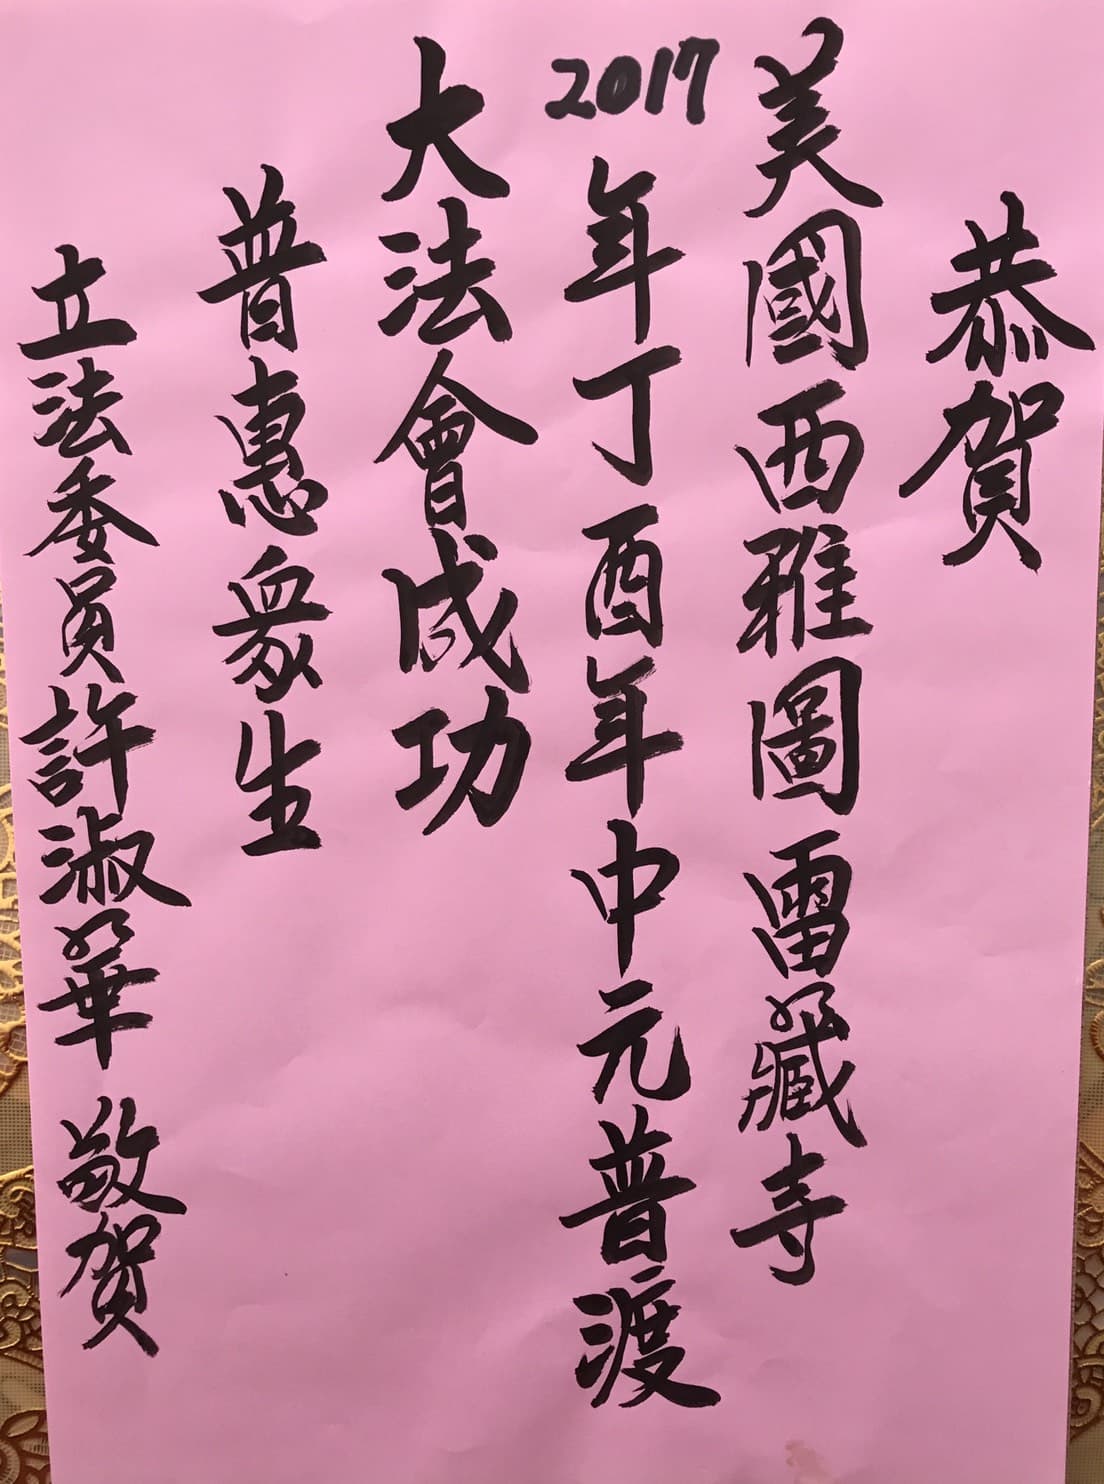 恭賀
美國西雅圖雷藏寺
2017年丁酉年中元普渡
大法會成功
普惠眾生
立法委員許淑華 敬賀